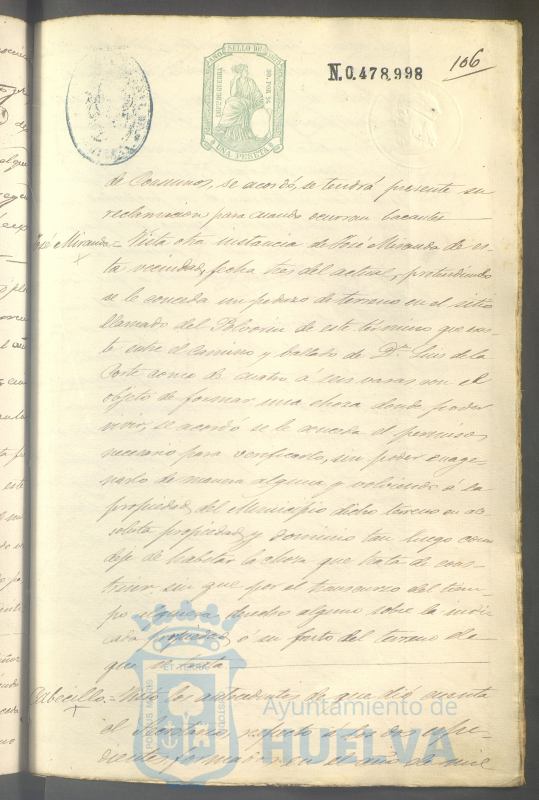 SELLO DE
UNA PESETA
N.0.478,998
106
de Consumos, se acordó, se tendrá presente su
reclamacion para cuando ocurran bacantes
José Miranda = Vista otra instancia de José Miranda de es-
ta vecindad, fecha tres del actual, pretendiendo
se le conceda un pedazo de terreno en el sitio
llamado del de este término que
entre el camino y ballado de Dn. Luis de la
Corte como de cuatro á seis varas con el
objeto de formar una choza donde poder
vivir, se acordó se le conceda el permiso
necesario para verificarlo, sin poder enage-
narlo de manera alguna y volviendo á la
propiedad del Municipio dicho terreno en ab-
soluta propiedad y dominio tan luego como
deje de habitar la choza que trata de cons-
truir sin que por el transcurso del tiem-
po adquiera derecho alguno sobre la indi-
cada propiedad ó su parte del terreno de
que se trata
Cabecillo = Visto los antecedentes de que dió cuenta
el Secretario, respecto á los dos espe-
dientes formados en el año de mil
Ayuntamiento de
HUELVA